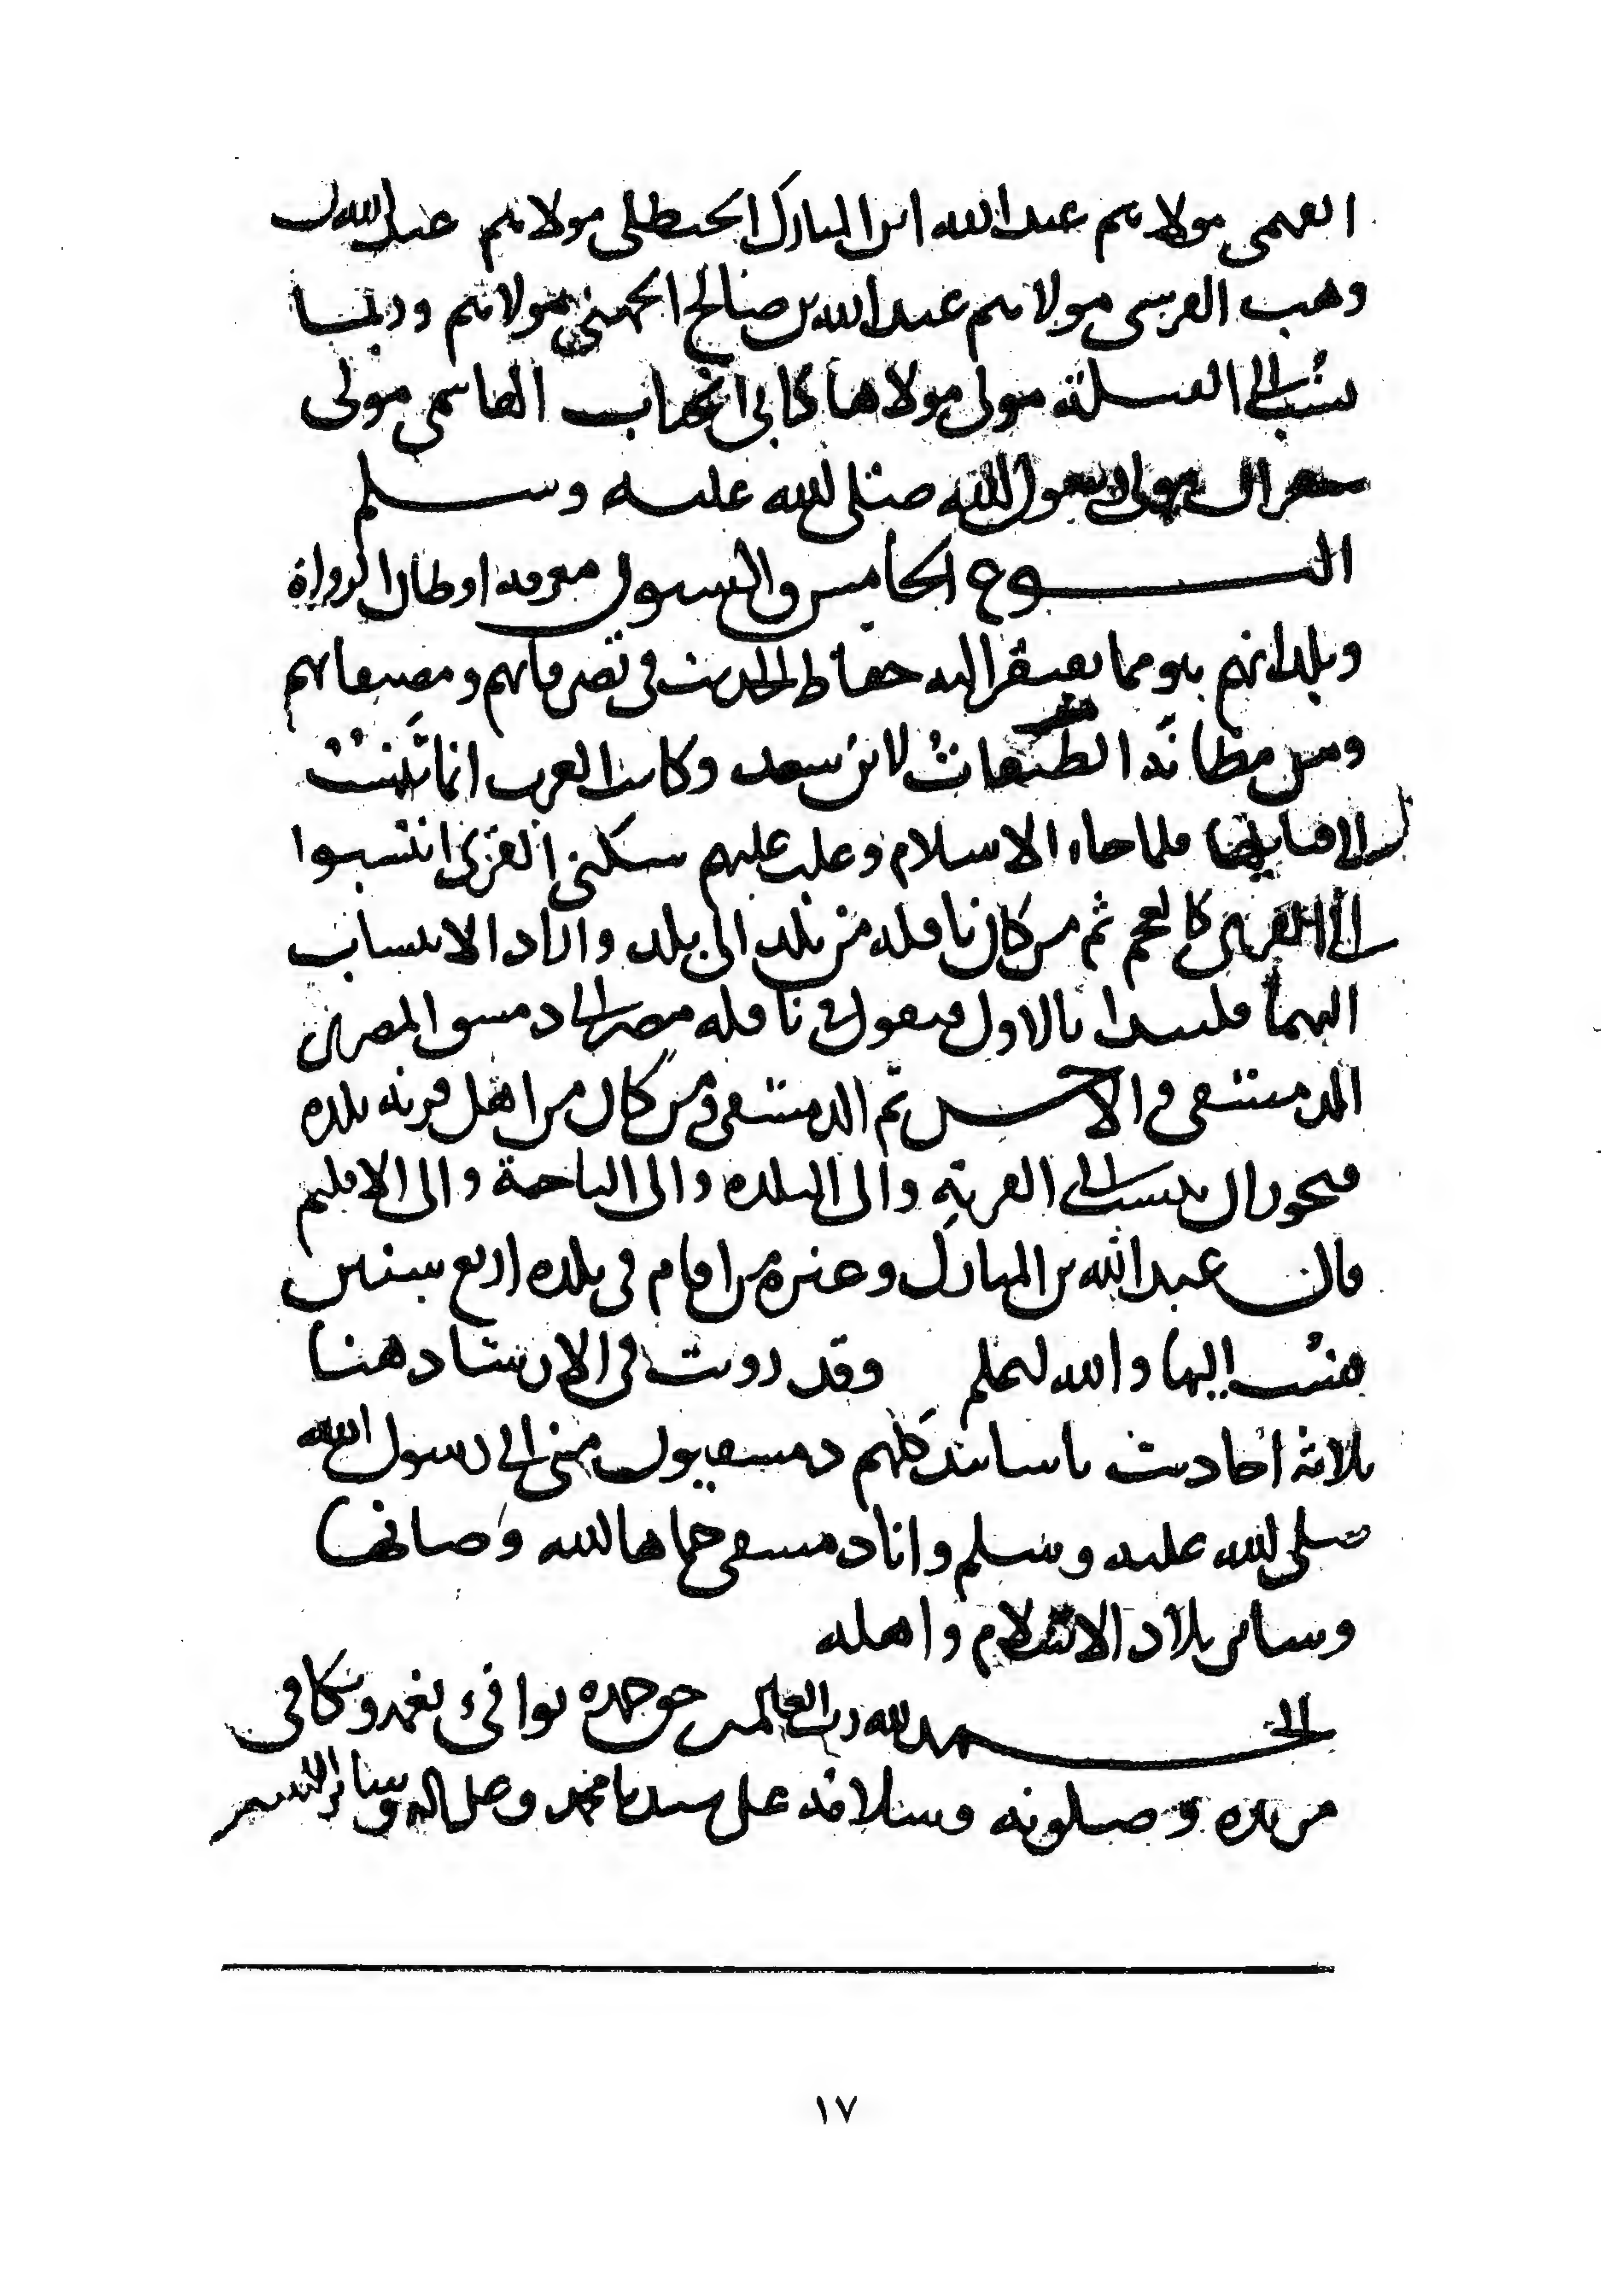 الفهمي مولاهم عبد الله ابن المبارك الحنظلي مولاهم عبد الله بن
وهب القرشي مولاهم عبد الله بن صالح الجهني مولاهم وربما
نسب الى القبيلة مولى مولاها كابي الحباب الهاشمي مولى
شقران مولى رسول الله صلى الله عليه وسلم
النوع الخامس والستون معرفة اوطان الرواة
وبلدانهم هو مما يفتقر اليه حفاظ الحديث في تصرفاتهم ومصنفاتهم
ومن مظانه الطبقات لابن سعد وكانت العرب انما تنتسب
الى قبايلها فلما جاء الاسلام وغلب عليهم سكنى القرى انتسبوا
الى القرى كالعجم ثم من كان ناقله من بلد الى بلد واراد الانتساب
اليهما فليبدا بالاول فيقول في ناقله مصر الى دمشق المصري
الدمشقي والاحسن ثم الدمشقي ومن كان من اهل قرية بلده
فيجوز ان ينسب الى القرية والى البلدة والى الناحية والى الاقليم
قال عبد الله بن المبارك وغيره من اقام في بلده اربع سنين
نسب اليها والله اعلم وقد رويت في الارشاد هنا
ثلاثة احاديث باسانيد كلهم دمشقيون مني الى رسول الله
صلى الله عليه وسلم وانا دمشقي حماها الله وصانها
وساير بلاد الاسلام واهله
الحمد لله رب العالمين حق حمده يوافي نعمه ويكافي
مزيده وصلوته وسلامه على سيدنا محمد وعلى اله وسائر النبيين
١٧